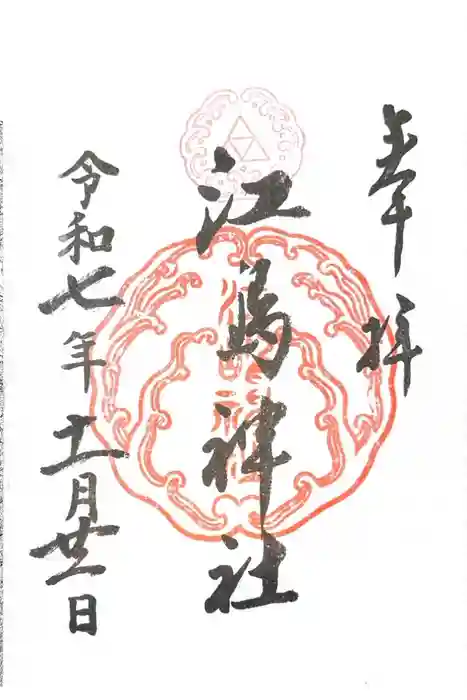 奉拝
江島神社
令和七年十一月廿一日